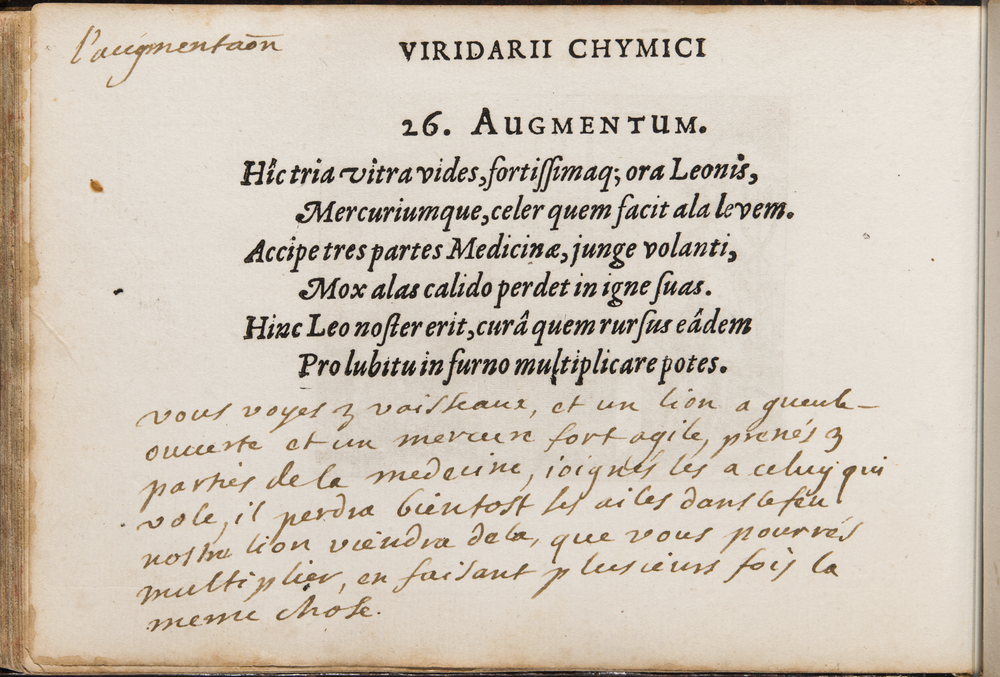 l'augmentaōn
VIRIDARII CHYMICI
26. AUGMENTUM.
Hîc tria vitra vides, fortissimaq; ora Leonis,
Mercuriumque, celer quem facit ala levem.
Accipe tres partes Medicinæ, junge volanti,
Mox alas calido perdet in igne suas.
Hinc Leo noster erit, curâ quem rursus eâdem
Pro lubitu in furno multiplicare potes.
vous voyes 3 vaisseaux, et un lion a gueule
ouverte et un mercure fort agile, prenés 3
parties de la medecine, ioignés les a celuy qui
vole, il perdra bientost ses ailes dans le feu
nostre lion viendra de la, que vous pourrés
multiplier, en faisant plusieurs fois la
meme chose.